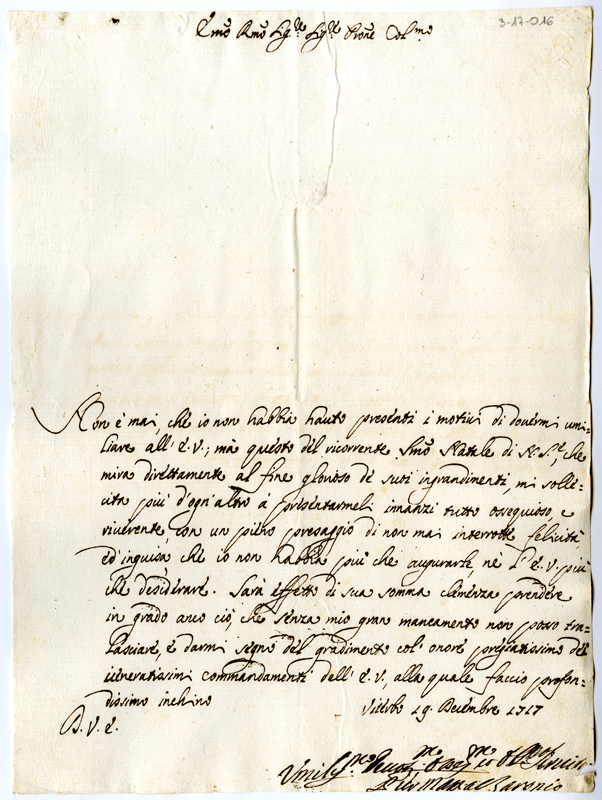 3-17-016
Emo Rmo Sigre Sigre Prone Colmo
Non è mai, che io non habbia hauto presenti i motiui di douermi umi=
liare all' E.V.; mà questo del ricorrente Smo Natale di N. Sre, che
mira direttamente al fine glorioso de suoi ingrandimenti, mi solle=
cita più d'ogn'altro à presentarmeli innanzi tutto ossequioso, e
riuerente con un pieno presaggio di non mai interrotte felicità
ed inguisa che io non habbia più che augurarle, nè l' E.V. più
che desiderare. Sarà effetto di sua somma clemenza prendere
in grado anco ciò, che senza mio gran mancamento non posso tra=
lasciare, e darmi segno del gradimento col' onore pregiatissimo de
ueneratissimi commandamenti dell' E.V., alla quale faccio profon=
dissimo inchino Viterbo 19 Decembre 1717
D. V. E.
Vmiliss.mo